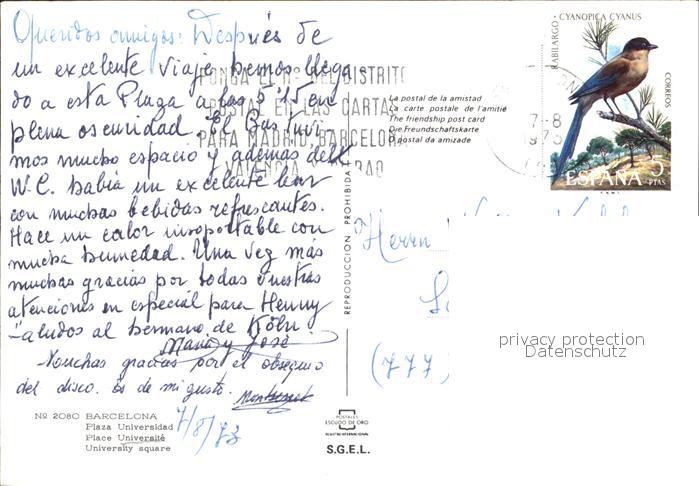 Queridos amigos: Después de
un excelente viaje hemos llega
do a esta Plaza a las 5'15 en
plena oscuridad. El Bus
mos mucho espacio y además del
W.C. había un excelente bar
con muchas bebidas refrescantes.
Hace un calor insoportable con
mucha humedad. Una vez más
muchas gracias por todas vuestras
atenciones en especial para Henny
-aludos al hermano de Köln
María y José
Muchas gracias por el obsequio
del disco. es de mi gusto. Montserrat
7/8/73
Nº 2080 BARCELONA
Plaza Universidad
Place Université
University square
PONGA EL Nº DEL DISTRITO
POSTAL EN LAS CARTAS
PARA MADRID, BARCELONA
VALENCIA BILBAO
La postal de la amistad
La carte postale de l'amitié
The friendship post card
Die Freundschaftskarte
O postal da amizade
REPRODUCCION PROHIBIDA
POSTALES
ESCUDO DE ORO
REGISTRO INTERNACIONAL
S.G.E.L.
RABILARGO - CYANOPICA CYANUS
CORREOS
ESPAÑA 5
PTAS
7-8
1973
Herrn
(777)
privacy protection
Datenschutz